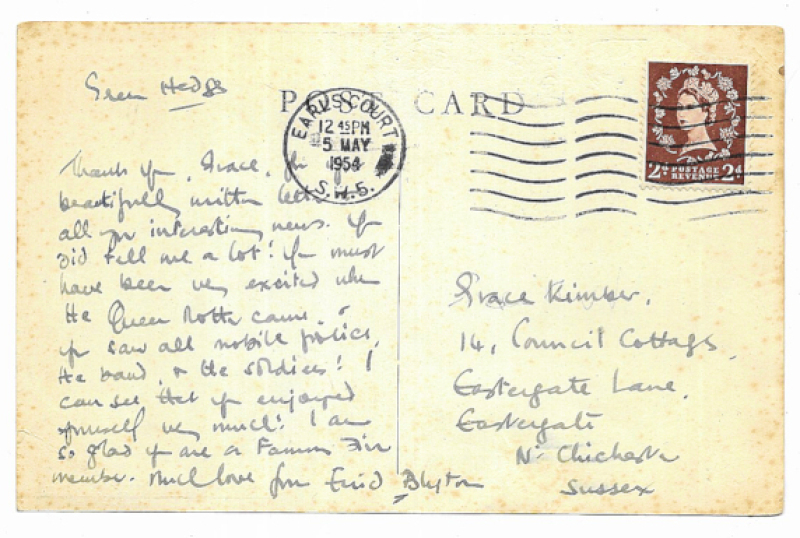 Green Hedges
POST CARD
EARL'S COURT
12 45 PM
5 MAY
1954
S.W.5.
2d POSTAGE REVENUE 2d
Thank you, Grace, for
beautifully written letter
all yr interesting news. You
did tell me a lot! You must
have been very excited when
the Queen Mother came, &
you saw all
the band, & the soldiers! I
can see that you enjoyed
yourself very much! I am
so glad you are a Famous Five
member. Much love from Enid Blyton
Grace Kimber,
14, Council Cottages,
Eastergate Lane,
Eastergate
Nr. Chichester
Sussex